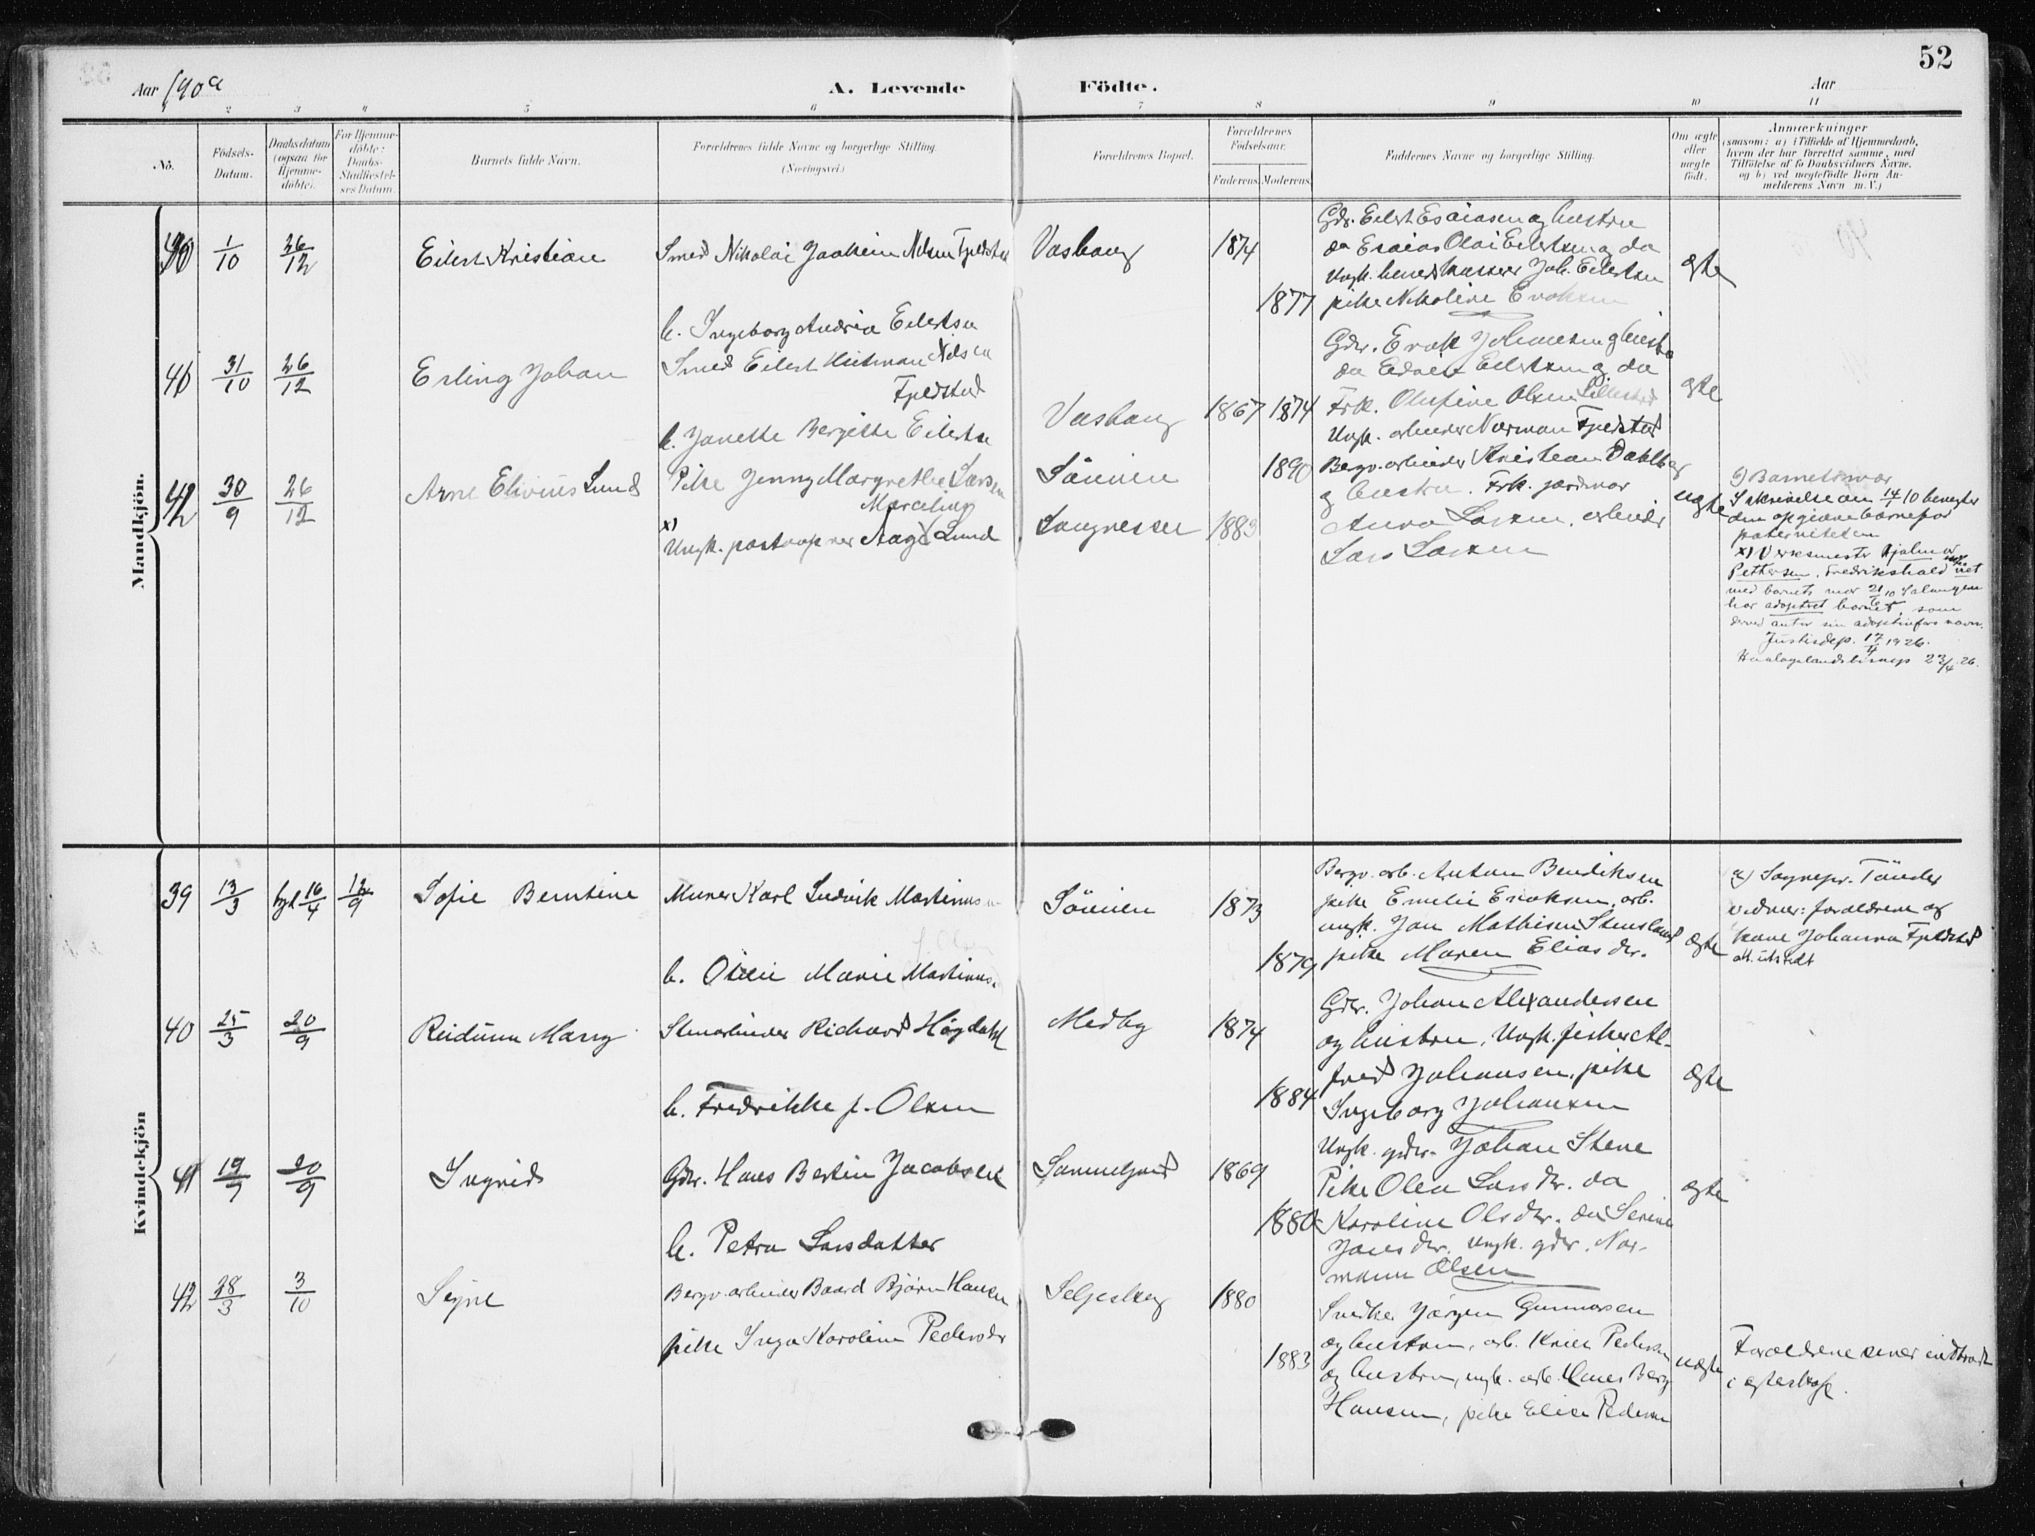 52
Aar 190
A. Levende Födte.
Aar
1 2 3 4 5 6 7 8 9 10 11
No.
Födsels-Datum.
Daabsdatum (ogsaa for Hjemme-döbte).
For Hjemme-döbte: Daabs-Stadfæstel-ses Datum.
Barnets fulde Navn.
Forældrenes fulde Navne og borgerlige Stilling. (Næringsvei.)
Forældrenes Bopæl.
Forældrenes Födselsaar.
Faderens. Moderens.
Faddernes Navne og borgerlige Stilling.
Om ægte eller uægte födt.
Anmærkninger
(saasom: a) i Tilfælde af Hjemmedaab,
hvem der har forrettet samme, med
Tilföielse af to Daabsvidners Navne,
og b) ved uægtefödte Börn An-
melderens Navn m. V.)
Mandkjön.
40 1/10 26/12 Eilert Kristian
Smed Nikolai Joakim Nilsen Fjeldstad
Vashaug 1874
h. Ingeborg Andrea Eilertsen
1877
Gdr. Eilert Esaiassen og hustru
da Esaias Olai Eilertsen og da
Ungk. Joh. Eilertsen
pike Nikoline
ægte
41 31/10 26/12 Erling Johan
Smed Eilert Nilsen
Fjeldstad
h. Janette Bergitte Eilertsen
Vashaug 1867 1874
Gdr. Johansen og hustru
da Eilertsen og da
Frk. Olufine Olsen
Ungk. arbeider Norman Fjeldstad
ægte
42 30/9 26/12 Arne Elivius Lund
Pike Jenny Margrethe Larsen
x)
Ungk. Aage Lund
Sörvien
Sangnesset 1883
1890
Bergv. arbeider Kristian Dahlberg
og hustru. Frk. jordmor
Anna Larsen, arbeider
Lars Larsen
uægte
b) Barnets mor
I skrivelse an 14/10 benegter
den opgivne barnefar
paterniteten
x) Verksmester Hjalmar
Pettersen, Fredrikshald
med barnets mor 21/6 10 Salangen
har adoptret barnet, som
derved antar sin adoptivfars navn.
Justisdep. 17/4 1926.
Haalogalands bisp 23/4 26.
Kvindekjön
39 13/3 16/4 12/9 Sofie Berntine
Murer Karl Ludvik Martinus
f. Olsen
h. Marie Martinus.
Sörvien 1873
1879
Bergv. arb. Anton Bendiksen
pike Emelie Eriksen, arb.
ungk. Jan Mathisen Stensland
pike Maren Elias dr.
ægte
a) Sognepr. Tönder
vidner: foraeldrene og
kone Johanna Fjeldstad
att. utstedt
40 25/3 20/9 Reidunn Marry
Stenarbeider Richard Högdahl
h. Fredrikke f. Olsen
Medby 1874
1884
Gdr. Johan Alexandersen
og hustru, Ungk. fisker Al-
fred Johansen, pike
Ingeborg Johansen
ægte
41 19/7 20/9 Ingrid
Gdr. Hans Bertin Jacobsen
h. Petra Larsdatter
1869
1880
Ungk. gdr. Johan Stene
Pike Olea Lars dtr. da
Karoline Ols dtr. da Serine
Jans dtr. Ungk. gdr. Nor-
mann Olsen
ægte
42 28/3 3/10 Signe
Bergv. arbeider Baard Björn Hansen
pike Inga Karoline Peders dr
Seljeskog 1880
1883
Snedker Jörgen Gunnarsen
og hustru, arb. Pedersen
og hustru, ungk. arb. Hans Berg
Hansen, pike Elise Pedersen
uægte
Foraeldrene senere indtraadt
i egteskap.